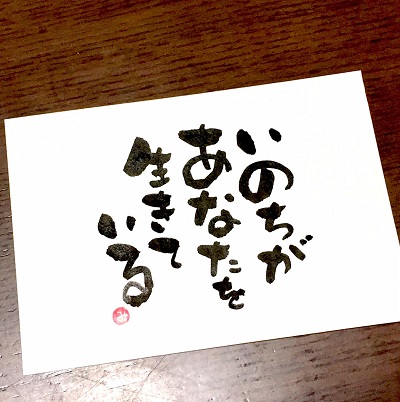 いのちが
あなたを
生きて
いる